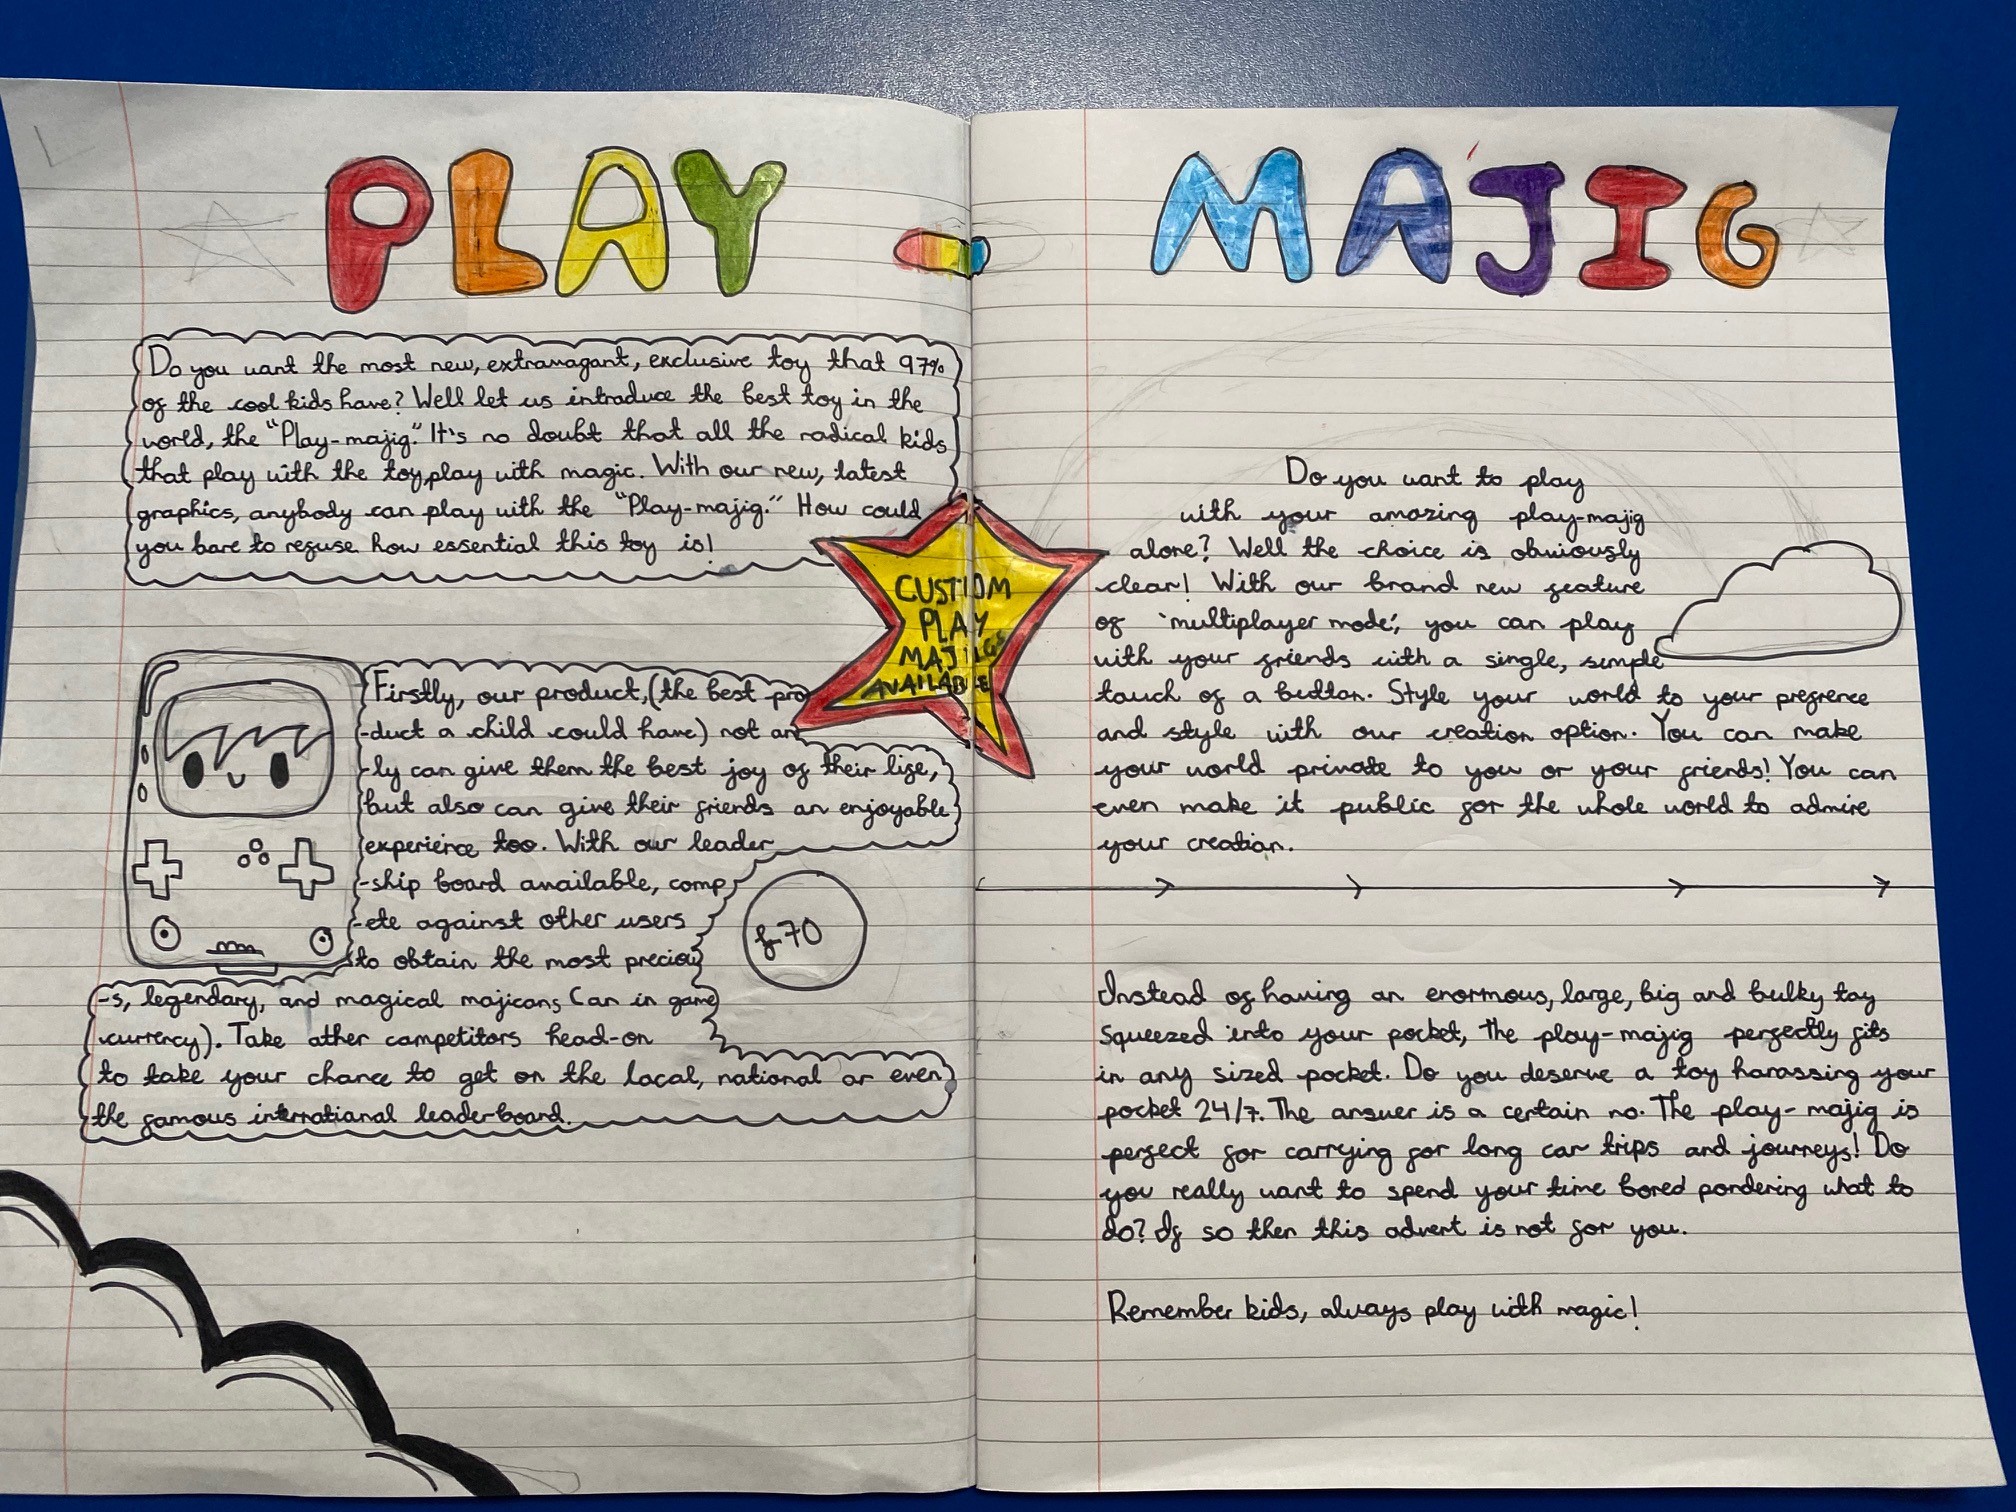 PLAY - MAJIG
Do you want the most new, extravagant, exclusive toy that 97%
of the cool kids have? Well let us introduce the best toy in the
world, the "Play-majig." It's no doubt that all the radical kids
that play with the toy,play with magic. With our new, latest
graphics, anybody can play with the "Play-majig." How could
you bare to refuse how essential this toy is!
CUSTOM
PLAY
MAJIGS
AVAILABLE
Firstly, our product,(the best pro
-duct a child could have) not on
-ly can give them the best joy of their life,
but also can give their friends an enjoyable
experience too. With our leader
-ship board available, comp
-ete against other users
to obtain the most preciou
-s, legendary, and magical majicans (an in game
currency). Take other competitors head-on
to take your chance to get on the local, national or even
the famous international leaderboard.
£70
Do you want to play
with your amazing play-majig
alone? Well the choice is obviously
clear! With our brand new feature
of 'multiplayer mode', you can play
with your friends with a single, simple
touch of a button. Style your world to your prefrence
and style with our creation option. You can make
your world private to you or your friends! You can
even make it public for the whole world to admire
your creation.
Instead of having an enormous, large, big and bulky toy
squeezed into your pocket, the play-majig perfectly fits
in any sized pocket. Do you deserve a toy harassing your
pocket 24/7. The answer is a certain no. The play-majig is
perfect for carrying for long car trips and journeys! Do
you really want to spend your time bored pondering what to
do? If so then this advert is not for you.
Remember kids, always play with magic!